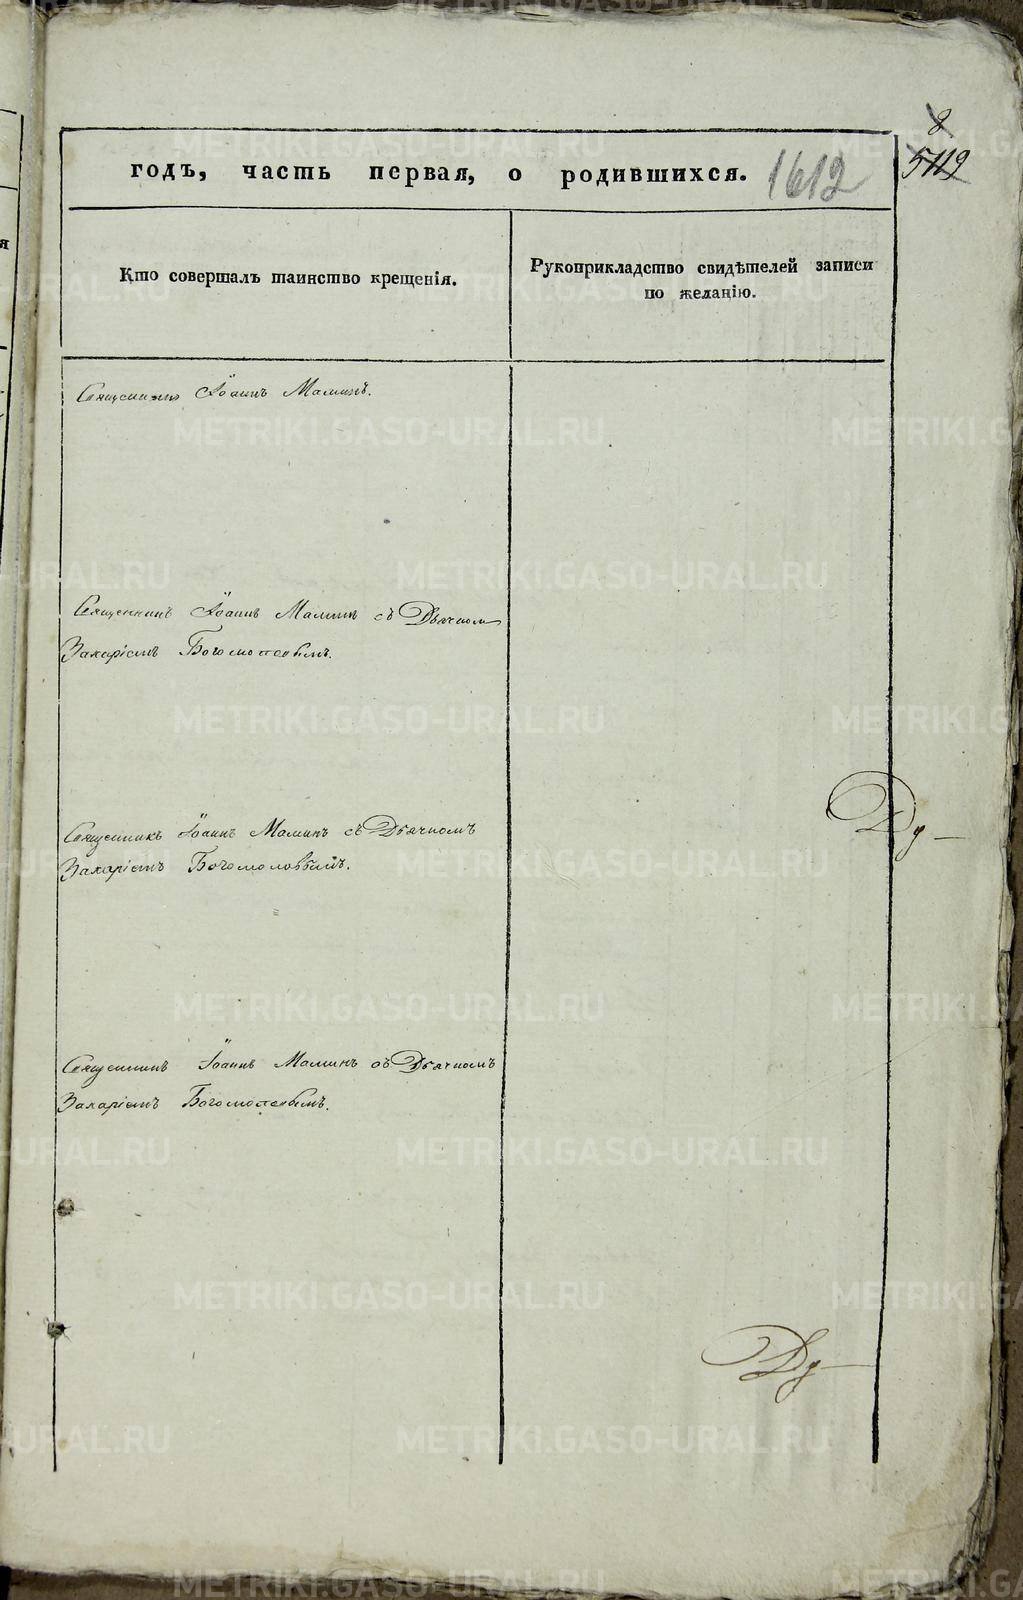 8
5119
годъ, часть первая, о родившихся. 1612
Кто совершалъ таинство крещенія.
Рукоприкладство свидѣтелей записи
по желанію.
Священникъ Іоаннъ Маминъ.
Священникъ Іоаннъ Маминъ съ Дьячкомъ
Захаріемъ Богомоловымъ.
Священникъ Іоаннъ Маминъ съ Дьячкомъ
Захаріемъ Богомоловымъ.
Священникъ Іоаннъ Маминъ съ Дьячкомъ
Захаріемъ Богомоловымъ.
METRIKI.GASO-URAL.RU